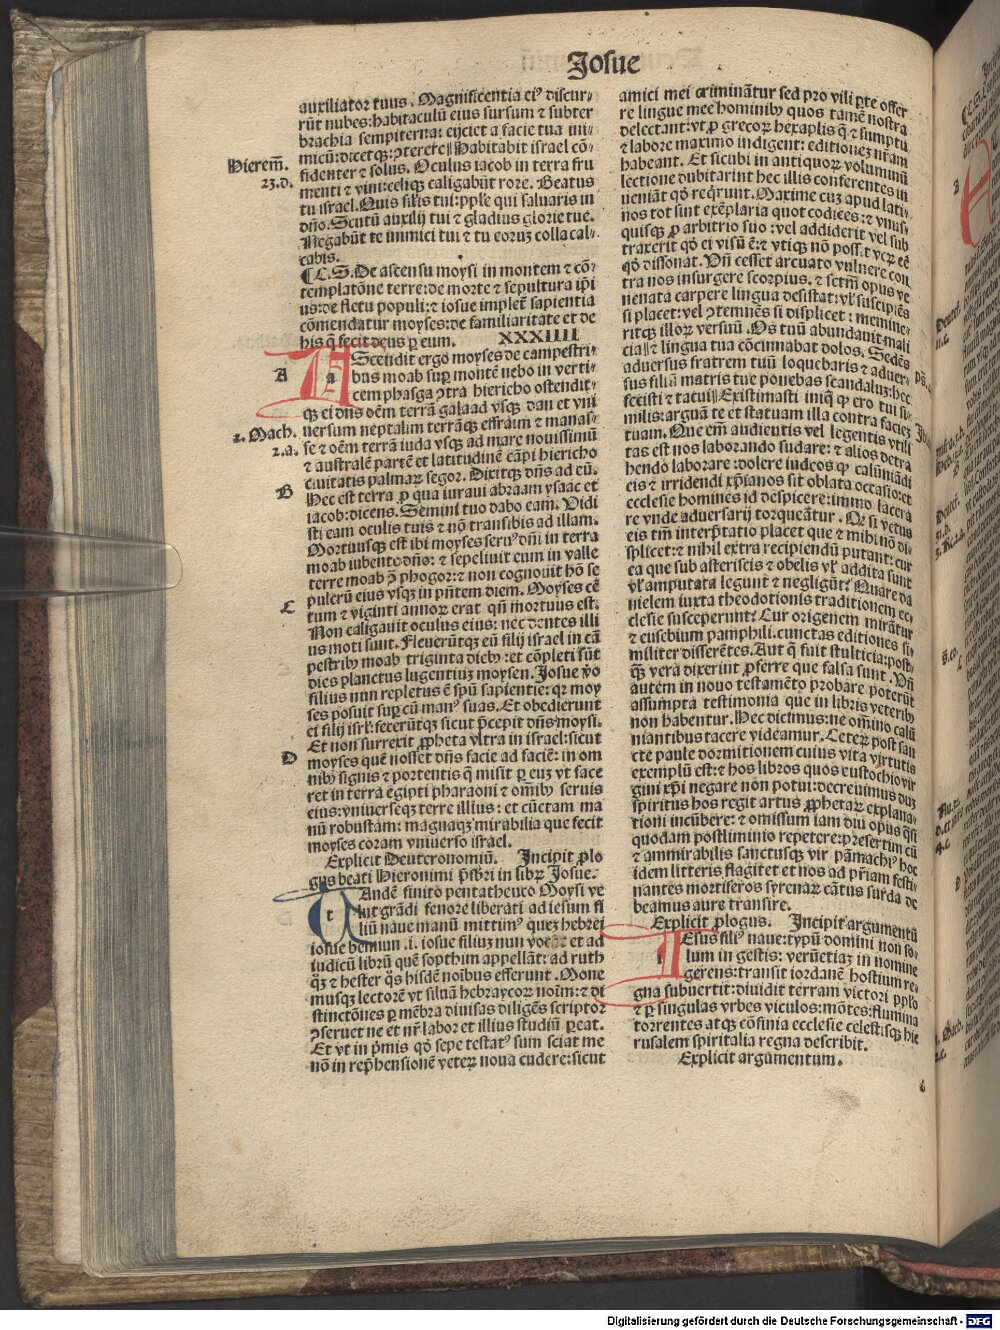 Iosue
auxiliator tuus. Magnificentia eiꝰ discur-
rūt nubes: habitaculū eius sursum ⁊ subter
brachia sempiterna: eijciet a facie tua ini-
micū: dicetqꝫ: ꝯterete‖ Habitabit israel cō-
Hieremi.
fidenter ⁊ solus. Oculus iacob in terra fru
23.d.
menti ⁊ vini: celiqꝫ caligabūt rore. Beatus
tu israel. Quis silis tui: pple qui saluaris in
dño. Scutū auxilij tui ⁊ gladius glorie tue.
Negabūt te inimici tui ⁊ tu eoruꝫ colla cal-
cabis.
¶ C. S. De ascensu moysi in montem ⁊ cō-
templatōne terre: de morte ⁊ sepultura ip̄i
us: de fletu populi: ⁊ iosue implet̄ sapientia
cōmendatur moyses: de familiaritate et de
his q̄ fecit deus ꝑ eum. XXXIIII
A
AScendit ergo moyses de campestri-
bus moab suꝑ montē nebo in verti-
cem phasga ꝯtra hiericho ostendit-
qꝫ ei dñs oēm terrā galaad vsqꝫ dan et vni
2. Mach.
uersum neptalim terrāqꝫ effraim ⁊ manas-
2.a.
se ⁊ oēm terrā iuda vsqꝫ ad mare nouissimū
⁊ australē partē et latitudinē cāpi hiericho
ciuitatis palmaꝝ segor. Dixitqꝫ dñs ad eū.
B
Hec est terra ꝓ qua iuraui abraam ysaac et
iacob: dicens. Semini tuo dabo eam. Vidi
sti eam oculis tuis ⁊ nō transibis ad illam.
Mortuusqꝫ est ibi moyses seruꝰ dñi in terra
moab iubente dño: ⁊ sepeliuit eum in valle
terre moab ꝯ̄ phogor: ⁊ non cognouit hō se
pulcrū eius vsqꝫ in p̄ntem diem. Moyses cē
C
tum ⁊ viginti annoꝝ erat qn̄ mortuus est.
Non caligauit oculus eius: nec dentes illi
us moti sunt. Fleuerūtqꝫ eū filij israel in cā
pestribꝫ moab triginta diebꝫ: et cōpleti sūt
dies planctus lugentiuꝫ moysen. Josue v̄o
filius nun repletus ē sp̄ū sapientie: qꝛ moy
ses posuit suꝑ cū manꝰ suas. Et obedierunt
ei filij isrl̄: fecerūtqꝫ sicut p̄cepit dñs moysi.
Et non surrexit ꝓpheta vltra in israel: sicut
D
moyses quē nosset dñs facie ad faciē: in om
nibꝫ signis ⁊ portentis q̄ misit ꝑ euꝫ vt face
ret in terra egipti pharaoni ⁊ om̄ibꝫ seruis
eius: vniuerseqꝫ terre illius: et cūctam ma
nū robustam: magnaqꝫ mirabilia que fecit
moyses coram vniuerso israel.
Explicit Deuteronomiū. Incipit ꝓlo
gus beati Hieronimi p̄sbr̄i in libꝝ Josue.
TAndē finito pentatheuco Moysi ve
lut grādi fenore liberati ad iesum fi
liū naue manū mittimꝰ queꝫ hebrei
iosue bennun .i. iosue filiuꝫ nun vocāt et ad
iudicū librū quē sopthim appellāt: ad ruth
qꝫ ⁊ hester q̄s hisdē noībus efferunt. Mone
musqꝫ lectorē vt siluā hebraycoꝝ noīm: ⁊ di
stinctōnes ꝑ mēbra diuisas diligēs scriptor
ꝯseruet ne et nr̄ labor et illius studiū ꝑeat.
Et vt in p̄mis qō sepe testatꝰ sum sciat me
nō in rep̄hensionē veteꝝ noua cudere: sicut
amici mei criminātur sed pro vili ꝑte offer
re lingue mee hominibꝫ quos tamē nostra
delectant: vt ꝓ grecoꝝ hexaplis q̄ ⁊ sumptū
⁊ labore maximo indigent: editioneꝫ nr̄am
habeant. Et sicubi in antiquoꝝ voluminū
lectione dubitarint hec illis conferentes in
ueniāt qō req̄runt. Maxime cuꝫ apud lati-
nos tot sint exēplaria quot codices: ⁊ vnus-
quisqꝫ ꝓ arbitrio suo: vel addiderit vel sub
traxerit qō ei visū ē: ⁊ vtiqꝫ nō poss.t veꝝ eē
qō dissonat. Vn̄ cesset arcuato vulnere con
tra nos insurgere scorpius. ⁊ sctm̄ opus ve
nenata carpere lingua desistat: vl̓ suscipiēs
si placet: vel ꝯtemnēs si displicet: memine-
ritqꝫ illoꝝ versuū. Os tuū abundauit mali
cia‖ ⁊ lingua tua cōcinnabat dolos. Sedēs
aduersus fratrem tuū loquebaris ⁊ aduer-
sus filiū matris tue ponebas scandaluꝫ: hec
fecisti ⁊ tacui‖ Existimasti iniq̄ ꝙ ero tui si-
milis: arguā te et statuam illa contra facieꝫ
tuam. Que em̄ audientis vel legentis vtili
tas est nos laborando sudare: ⁊ alios detra
hendo laborare: dolere iudeos ꝙ calūniādi
eis ⁊ irridendi xp̄ianos sit oblata occasio: et
ecclesie homines id despicere: immo lacera
re vnde aduersarij torqueātur. Qꝫ si vetus
eis tm̄ interp̄tatio placet que ⁊ mihi nō di-
splicet: ⁊ nihil extra recipiendū putant: cur
ea que sub asteriscis ⁊ obelis vl̓ addita sunt
vl̓ amputata legunt ⁊ negligūt? Quare da
nielem iuxta theodotionis traditionem ec-
clesie susceperunt? Cur origenem mirātur
⁊ eusebium pamphili. cunctas editiones si-
militer disserētes. Aut q̄ fuit stulticia: post-
qꝫ vera dixerint ꝓferre que falsa sunt. Vn̄
autem in nouo testamēto probare poterūt
assumpta testimonia que in libris veteribꝫ
non habentur. Hec dicimus: ne om̄ino calū
niantibus tacere videamur. Ceteꝝ post san
cte paule dormitionem cuius vita virtutis
exemplū est: ⁊ hos libros quos eustochio vir
gini xp̄i negare non potui: decreuimus duꝫ
spiritus hos regit artus ꝓphetaꝝ explana-
tioni incūbere: ⁊ omissum iam diu opus q̄si
quodam postliminio repetere: presertim cū
⁊ ammirabilis sanctusqꝫ vir pāmachiꝰ hoc
idem litteris flagitet et nos ad p̄riam festi-
nantes mortiferos syrenaꝝ cātus surda de
beamus aure transire.
Explicit ꝓlogus. Incipit argumentū
IEsus filiꝰ naue: typū domini non so-
lum in gestis: verūetiaꝫ in nomine
gerens: transit iordanē hostium re-
gna subuertit: diuidit terram victori pplo
⁊ ꝑ singulas vrbes viculos: mōtes: flumina
torrentes atqꝫ cōfinia ecclesie celestisqꝫ hie
rusalem spiritalia regna describit.
Explicit argumentum.
Digitalisierung gefördert durch die Deutsche Forschungsgemeinschaft - DFG